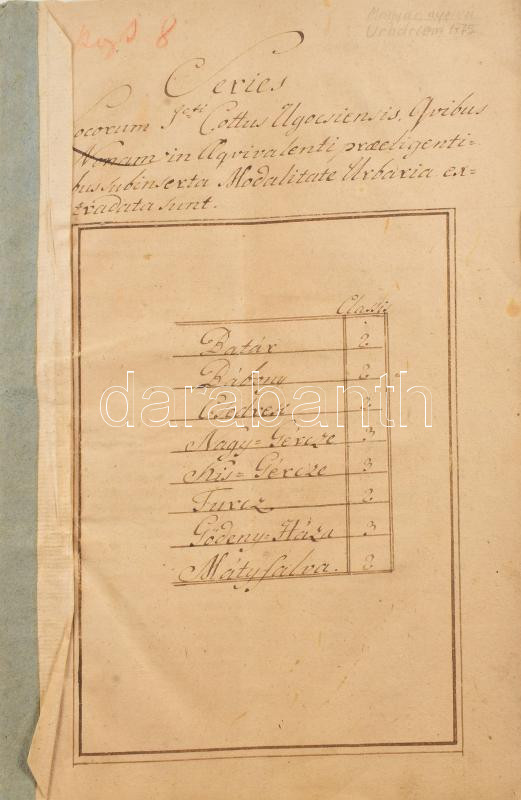 8
Magyar nyelvű
Series
Locorum I. Cottus Ugocsiensis, Qvibus
Nonam in Aqvivalenti præeligenti=
bus subinserta Modalitate Urbaria ex=
tradata sunt.
Classis
Batár 2
Bábony 2
Csedreg 2
Nagy=Gércze 3
Kis=Gércze 3
Turcz 2
Gödeny=Háza 3
Mátyfalva. 2
darabanth